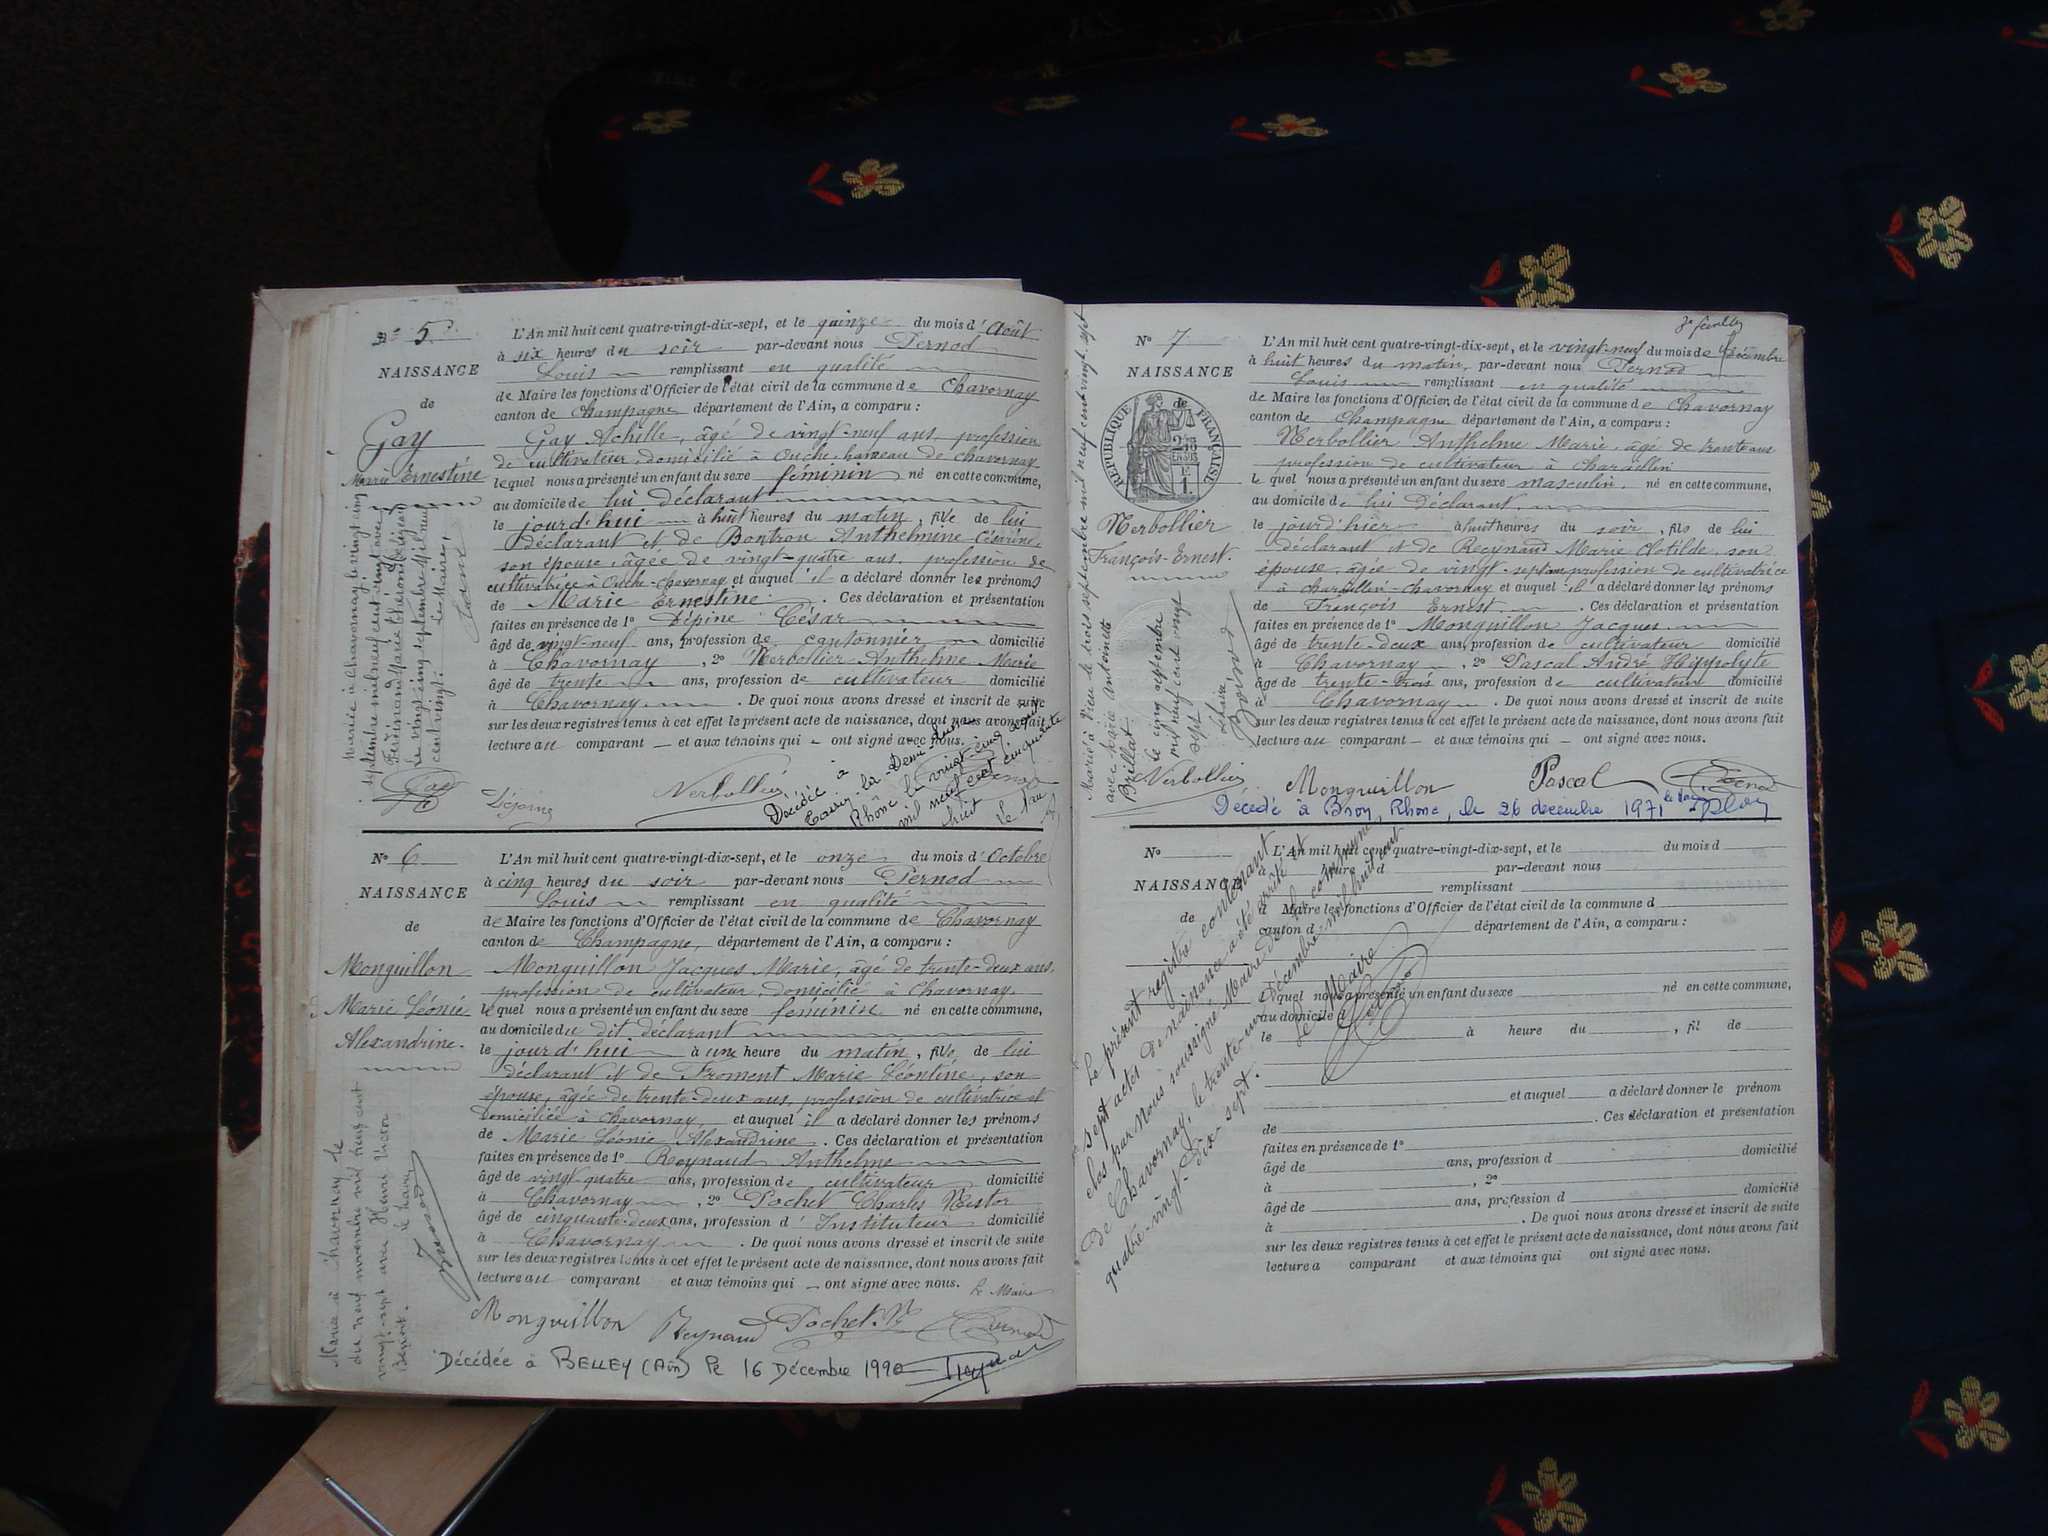 N° 5
NAISSANCE
de
Gay
Marie Ernestine
L'An mil huit cent quatre-vingt-dix-sept, et le quinze du mois d'Août
à six heures du soir par-devant nous Pernod
Louis remplissant en qualité
de Maire les fonctions d'Officier de l'état civil de la commune de Chavornay
canton de Champagne département de l'Ain, a comparu :
Gay Achille, âgé de vingt-neuf ans, profession
de cultivateur, domicilié à Ouche, hameau de Chavornay
lequel nous a présenté un enfant du sexe féminin né en cette commune,
au domicile de lui déclarant
le jour d'hui à huit heures du matin, fille de lui
déclarant et de Bontron Anthelmine Césarine,
son épouse, âgée de vingt-quatre ans, profession de
cultivatrice à Ouche-Chavornay et auquel il a déclaré donner les prénoms
de Marie Ernestine. Ces déclaration et présentation
faites en présence de 1° Lépine César
âgé de vingt-neuf ans, profession de cantonnier domicilié
à Chavornay, 2° Nerbollier Anthelme Marie
âgé de trente ans, profession de cultivateur domicilié
à Chavornay. De quoi nous avons dressé et inscrit de suite
sur les deux registres tenus à cet effet le présent acte de naissance, dont nous avons fait
lecture au comparant et aux témoins qui ont signé avec nous.
Mariée à Chavornay le vingt cinq
septembre mil neuf cent vingt avec
le vingt cinq septembre mil neuf
cent vingt.
Le Maire,
Gay
Nerbollier
Décédée à
Rhône le vingt-cinq
mil neuf cent cinquante
huit
N° 6
NAISSANCE
de
Monguillon
Marie Léonie
Alexandrine.
L'An mil huit cent quatre-vingt-dix-sept, et le onze du mois d'Octobre
à cinq heures du soir par-devant nous Pernod
Louis remplissant en qualité
de Maire les fonctions d'Officier de l'état civil de la commune de Chavornay
canton de Champagne, département de l'Ain, a comparu :
Monguillon Jacques Marie, âgé de trente-deux ans,
profession de cultivateur, domicilié à Chavornay,
lequel nous a présenté un enfant du sexe féminin né en cette commune,
au domicile du dit déclarant
le jour d'hui à une heure du matin, fille de lui
déclarant et de Froment Marie Léontine, son
épouse, âgée de trente-deux ans, profession de cultivatrice et
domiciliée à Chavornay, et auquel il a déclaré donner les prénoms
de Marie Léonie Alexandrine. Ces déclaration et présentation
faites en présence de 1° Reynaud Anthelme
âgé de vingt quatre ans, profession de cultivateur domicilié
à Chavornay, 2° Pochet Charles Nestor
âgé de cinquante-deux ans, profession d'Instituteur domicilié
à Chavornay. De quoi nous avons dressé et inscrit de suite
sur les deux registres tenus à cet effet le présent acte de naissance, dont nous avons fait
lecture au comparant et aux témoins qui ont signé avec nous.
Le Maire
Mariée à Charonnay le
du neuf novembre mil neuf cent
vingt-sept avec Henri Victor
Benoit.
Le Maire
Monguillon Reynaud Pochet N
Décédée à BELLEY (Ain) le 16 Décembre 1990
N° 7
NAISSANCE
RÉPUBLIQUE FRANÇAISE
Nerbollier
François-Ernest.
L'An mil huit cent quatre-vingt-dix-sept, et le vingt-neuf du mois de Décembre
à huit heures du matin, par-devant nous Pernod
Louis remplissant en qualité
de Maire les fonctions d'Officier de l'état civil de la commune de Chavornay
canton de Champagne département de l'Ain, a comparu :
Nerbollier Anthelme Marie, âgé de trente ans
profession de cultivateur à Charaillin
lequel nous a présenté un enfant du sexe masculin, né en cette commune,
au domicile de lui déclarant,
le jour d'hier à huit heures du soir, fils de lui
déclarant et de Reynaud Marie Clotilde, son
épouse, âgée de vingt-sept ans, profession de cultivatrice
à Charaillin-Chavornay et auquel il a déclaré donner les prénoms
de François Ernest. Ces déclaration et présentation
faites en présence de 1° Monguillon Jacques
âgé de trente-deux ans, profession de cultivateur domicilié
à Chavornay, 2° Pascal André Hippolyte
âgé de trente-trois ans, profession de cultivateur domicilié
à Chavornay. De quoi nous avons dressé et inscrit de suite
sur les deux registres tenus à cet effet le présent acte de naissance, dont nous avons fait
lecture au comparant et aux témoins qui ont signé avec nous.
Marié à Vieu le trois septembre mil neuf cent vingt-sept
avec Marie Antoinette
Brillat
Le cinq septembre
mil neuf cent vingt
sept
Nerbollier Monguillon Pascal
Décédé à Bron, Rhône, le 26 décembre 1971
N°
NAISSANCE
de
L'An mil huit cent quatre-vingt-dix-sept, et le du mois d
à heure d par-devant nous
remplissant
d Maire les fonctions d'Officier de l'état civil de la commune d
canton d département de l'Ain, a comparu :
lequel nous a présenté un enfant du sexe né en cette commune,
au domicile d
le à heure du , fil de
et auquel a déclaré donner le prénom
de . Ces déclaration et présentation
faites en présence de 1°
âgé de ans, profession d domicilié
à , 2°
âgé de ans, profession d domicilié
à . De quoi nous avons dressé et inscrit de suite
sur les deux registres tenus à cet effet le présent acte de naissance, dont nous avons fait
lecture a comparant et aux témoins qui ont signé avec nous.
Le présent registre contenant
sept actes de naissance a été arrêté et
clos par Nous soussigné Maire de la commune
de Chavornay, le trente-un Décembre mil huit cent
quatre-vingt-dix-sept.
Le Maire